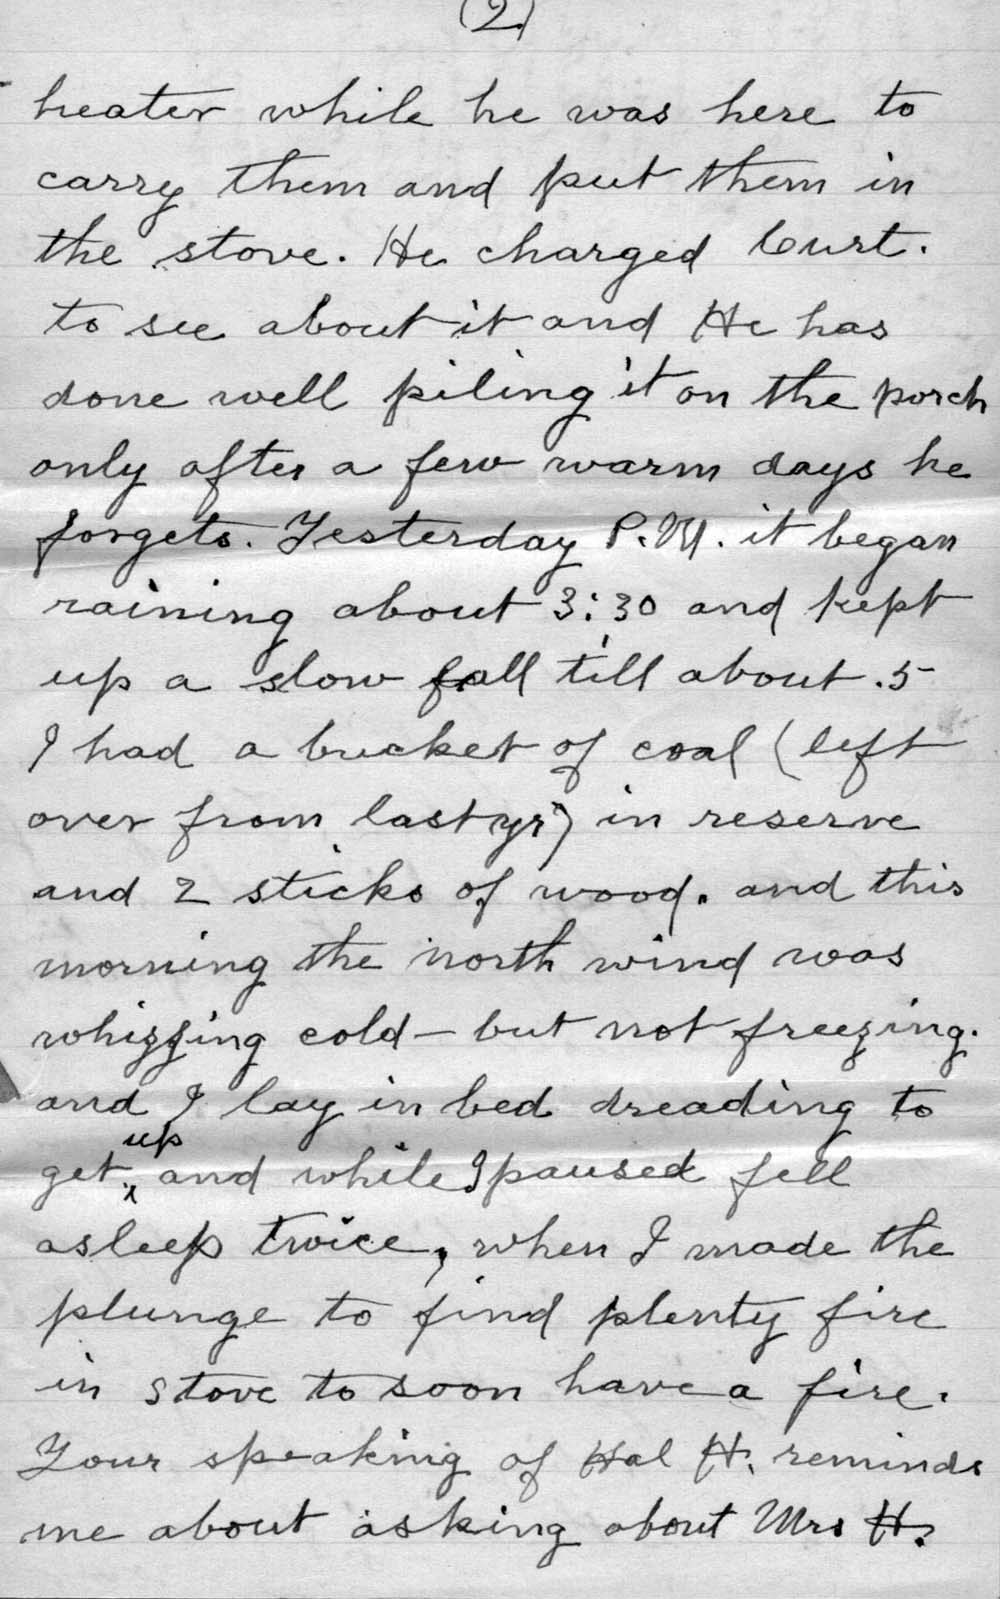 (2)
heater while he was here to
carry them and put them in
the stove. He charged Curt.
to see about it and He has
done well piling it on the porch
only after a few warm days he
forgets. Yesterday P.M. it began
raining about 3:30 and kept
up a slow fall till about .5
I had a bucket of coal (left
over from last yr) in reserve
and 2 sticks of wood. and this
morning the north wind was
whizzing cold - but not freezing.
and I lay in bed dreading to
get up and while I paused fell
asleep twice, when I made the
plunge to find plenty fire
in stove to soon have a fire.
Your speaking of Hal H. reminds
me about asking about Mrs H.